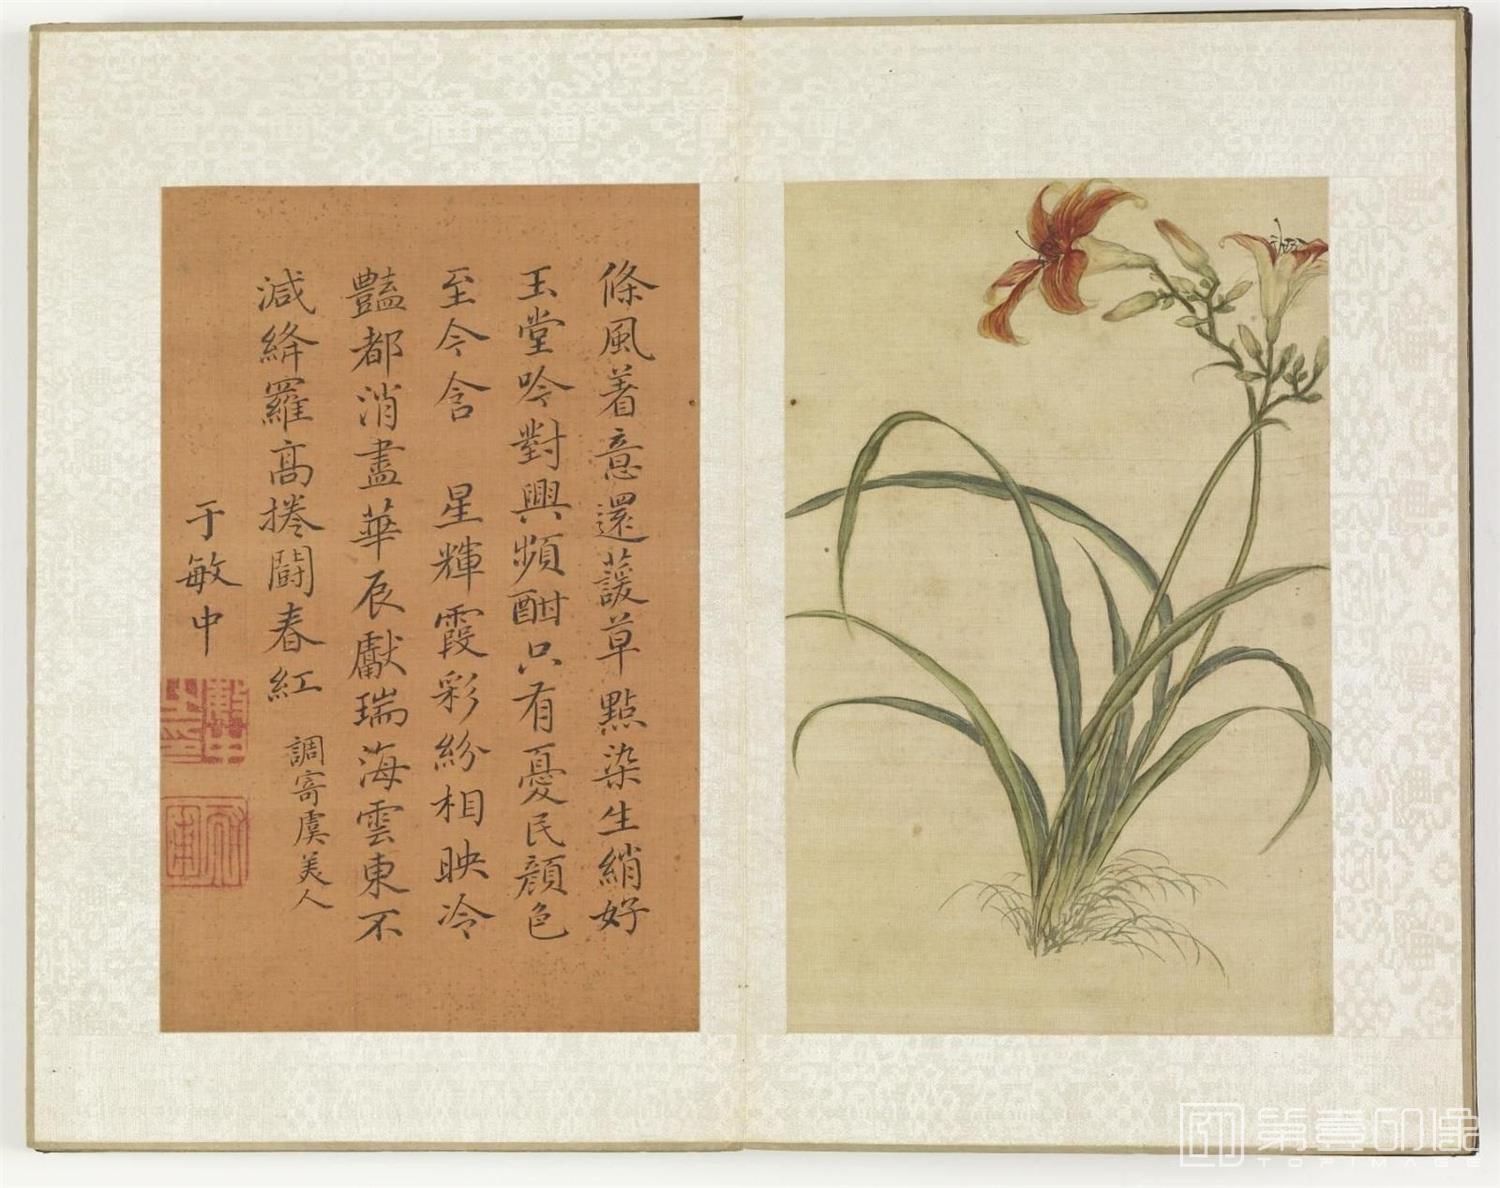 條風着意還護草點染生綃好
玉堂吟對興頻酣只有憂民顏色
至今含　星輝霞彩紛相映冷
豔都消盡華辰獻瑞海雲東不
減絳羅高捲鬪春紅
調寄虞美人
于敏中
第壹印象
TOPIMAGE